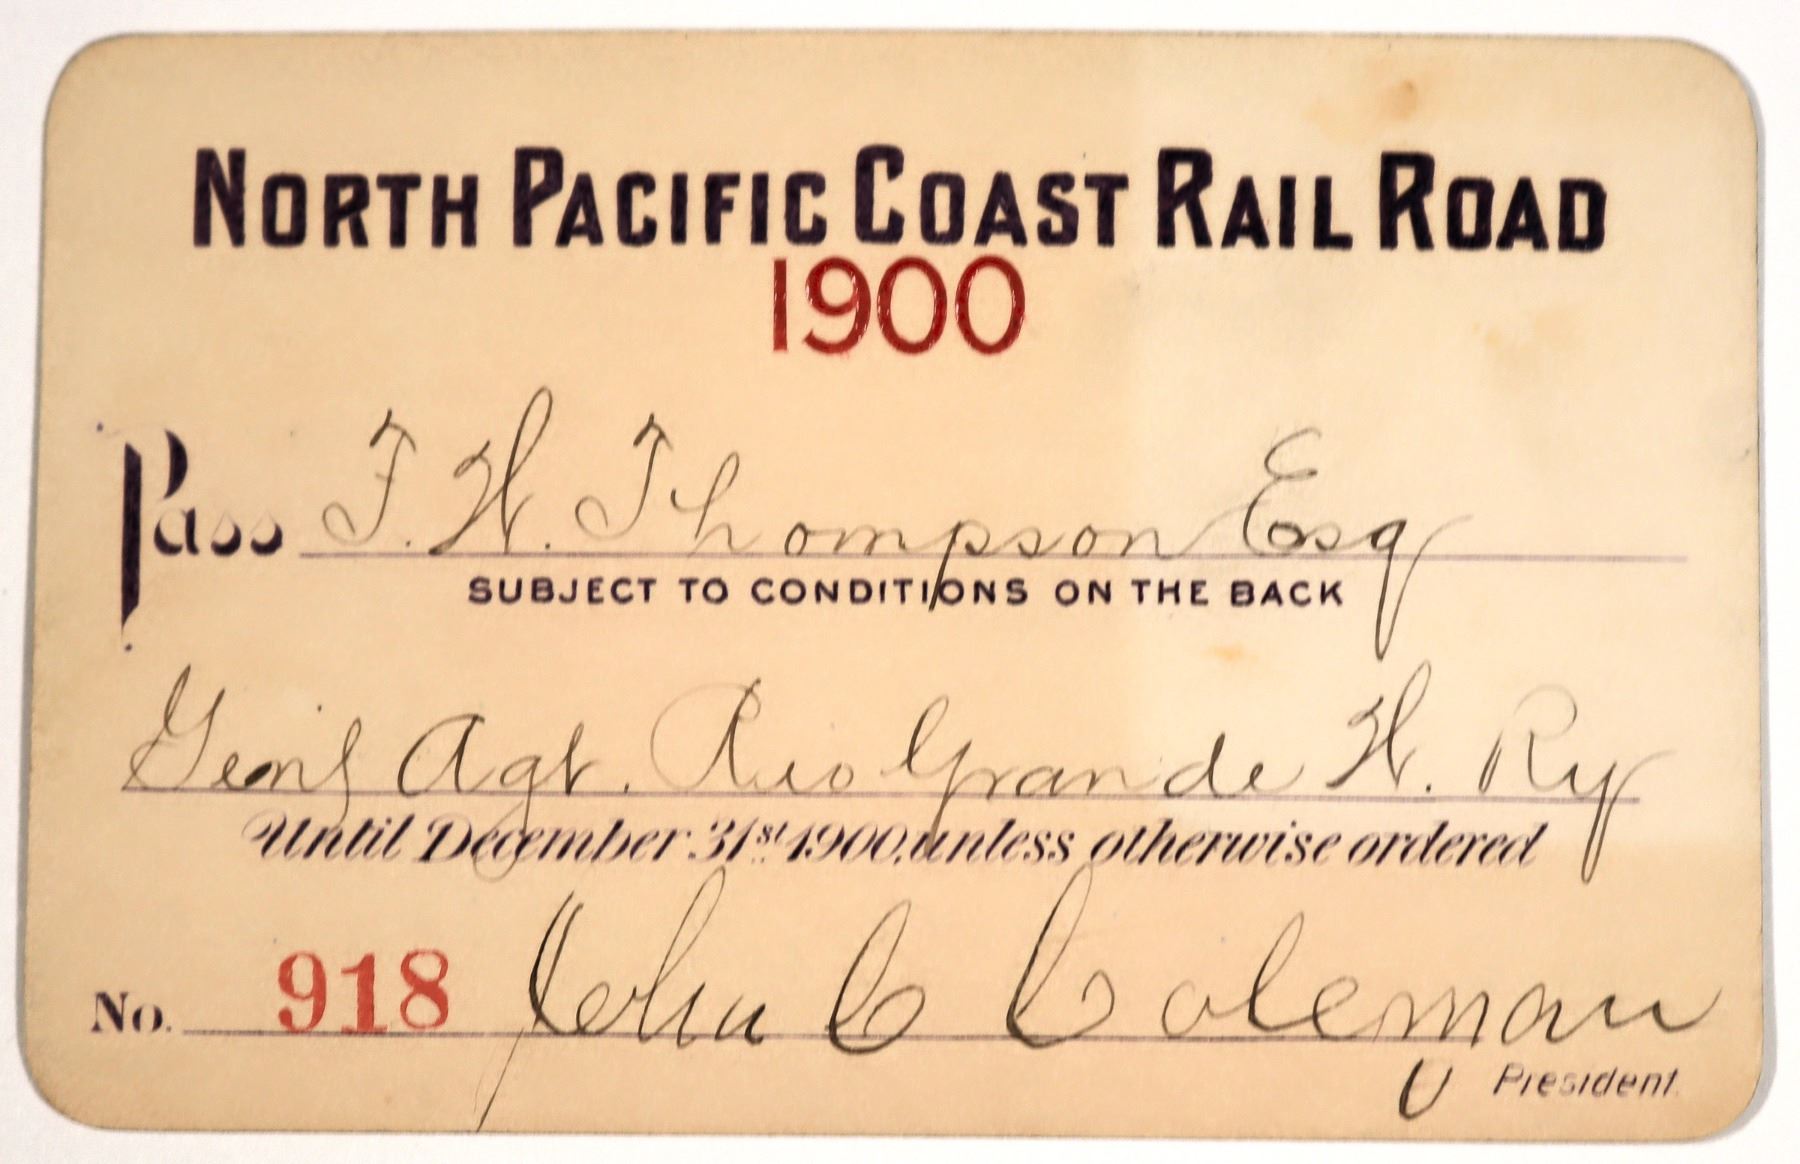 NORTH PACIFIC COAST RAIL ROAD
1900
Pass F. W. Thompson Esq
SUBJECT TO CONDITIONS ON THE BACK
Gen'l Agt. Rio Grande W. Ry
Until December 31st 1900, unless otherwise ordered
No. 918 John C Coleman
President.